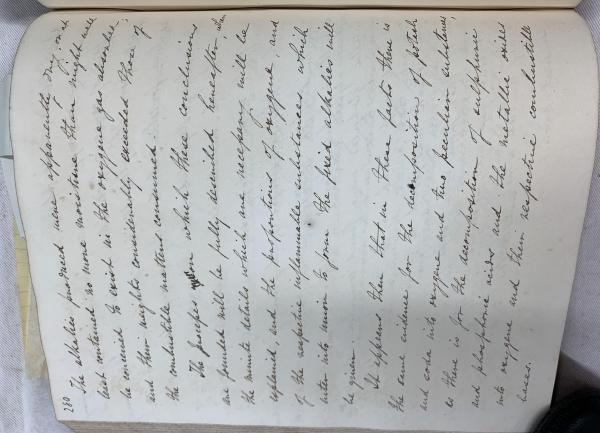 280
The alkalies produced were apparently dry, or at
least contained no more moisture than might well
be conceived to exist in the oxygene gas absorbed,
and their weights considerably exceeded those of
the combustible matters consumed.
The processes upon which these conclusions
are founded will be fully described hereafter when
the minute details which are necessary will be
explained, and the proportions of oxygene, and
of the respective inflammable substances which
enter into union to form the fixed alkalies will
be given.
It appears then that in these facts there is
the same evidence for the decomposition of potash
and soda into oxygene and two peculiar substances,
as there is for the decomposition of sulphuric
and phosphoric acids and the metallic oxides
into oxygene and their respective combustible
bases.